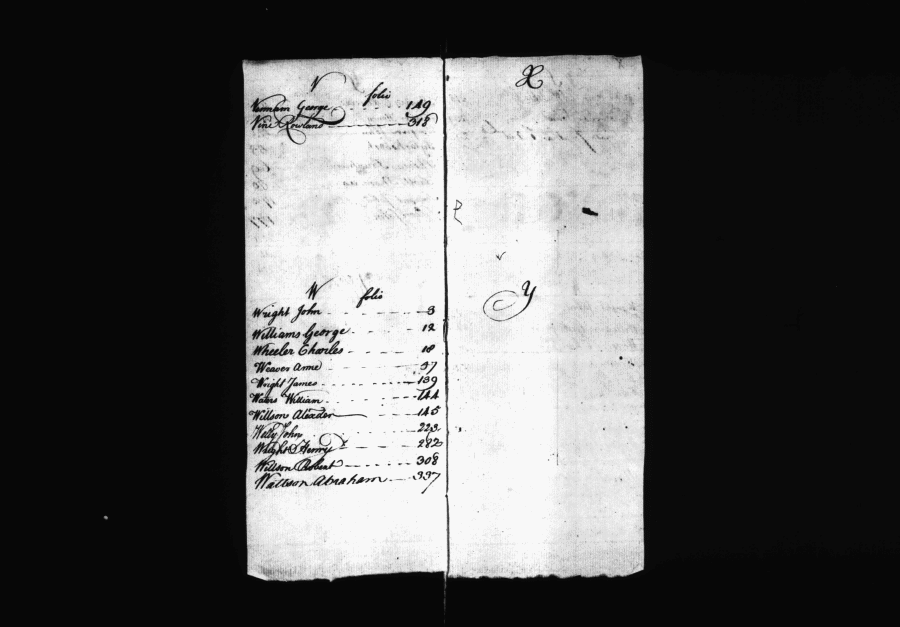 V
folio
George 149
Vine Rowland 318
W
folio
Wright John 3
Williams George 12
Wheeler Charles 18
Weaver Anne 37
Wright James 139
Waters William 144
Willson Alexder 145
Welly John 223
Wright Henry 282
Willson Robert 308
Wattson Abraham 337
X
Y